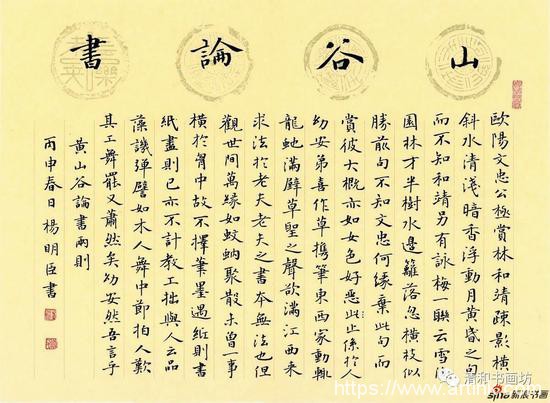 山谷論書
歐陽文忠公極賞林和靖疎影橫
斜水清淺暗香浮動月黃昏之句
而不知和靖另有詠梅一聯云雪後
園林才半樹水邊籬落忽橫枝似
勝前句不知文忠何緣棄此句而
賞彼大概亦如女色好惡此止係於人
幼安弟喜作草攜筆東西家動輒
龍蛇滿壁草聖之聲欲滿江西來
求法於老夫老夫之書本無法也但
觀世間萬緣如蚊蚋聚散未曾一事
橫於胷中故不擇筆墨遇紙則書
紙盡則已亦不計教工拙與人云品
藻譏彈譬如木人舞中節拍人歎
其工舞罷又蕭然矣幼安然吾言乎
黃山谷論書兩則
丙申春日楊明臣書
清和书画坊
新浪书画